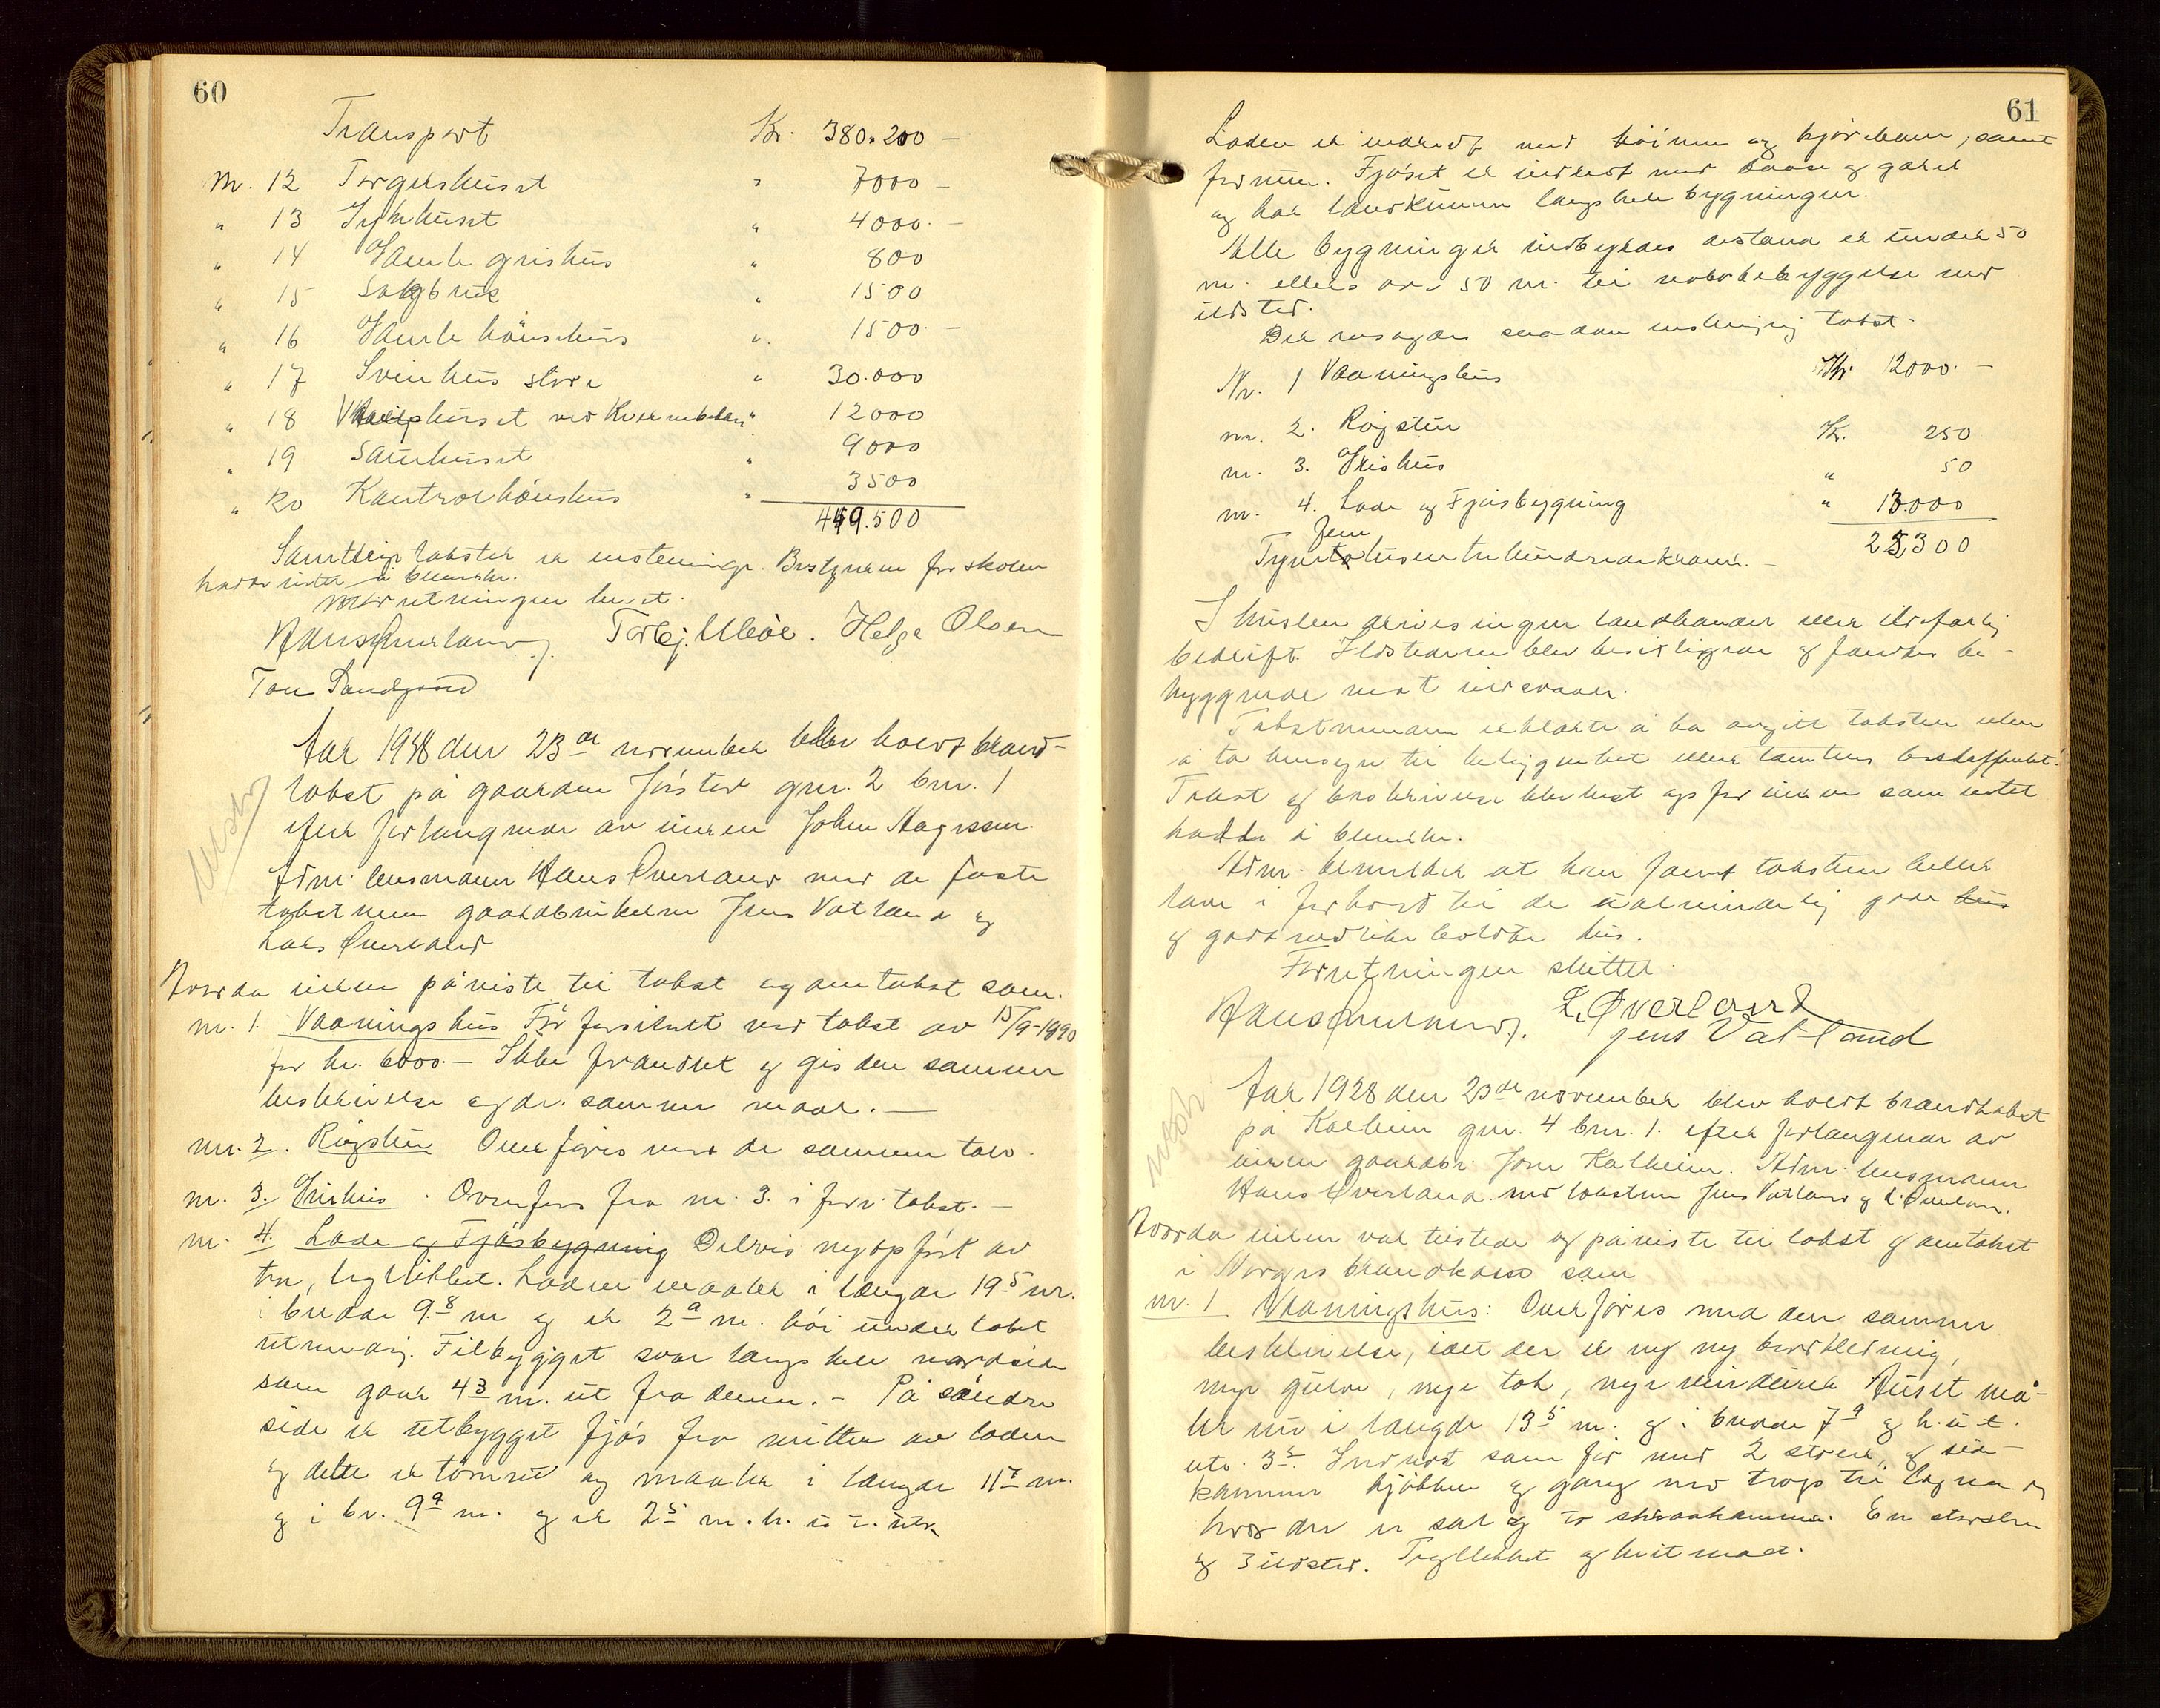 60
Transport Kr. 380.200 –
nr. 12 Torgershuset " 7000 –
" 13 " 4000. –
" 14 Gamle grishus " 800
" 15 Sagbruk " 1500
" 16 Gamle hönsehus " 1500. –
" 17 Svinhus store " 30.000
" 18 huset ved Kvernbekken " 12000
" 19 Sauehuset " 9000
" 20 Kontrolhönshus " 3500
449.500
Samtlige takster er enstemmige. Bestyreren for skolen
hadde intet å bemerke.
Forretningen hevet.
Hans Överland. Torbj. Ulvöe. Helge Olsen
Tou Sandgaard
Aar 1928 den 23de november blev holdt brand-
takst på gaarden Jöstad gnr. 2 bnr. 1
efter forlangende av eieren John Aagessen.
Adm. lensmann Hans Överland med de faste
takstmenn gaardbrukerne Jens Vatland og
Lars Överland
Hvorda eieren påviste til takst og omtakst som.
nr. 1. Vaaningshus För forsikret ved takst av 15/9-1890
for kr. 6000. – Ikke forandret og gis den sammen
beskrivelse og de sammer maal. –
nr. 2. Röystue Overföres med de sammen tall.
nr. 3. Grishus. Overföres fra nr. 3. i forr. takst. –
nr. 4. Lade og Fjösbygning Delvis nyopfört av
tre, teglstekket. Laden maaler i længde 19 5 m.
i bredde 9.8 m og er 2 9 m. höi under taket
utvendig. Tilbygget sval langs hele nordside
som gaar 4 3 m. ut fra denne. – På söndre
side er utbygget fjös fra mitten av laden
og dette er tömret og maaler i længde 11 m.
og i br. 9 9 m. og er 2 5 m. h. u. t. utv.
61
Laden er innredt med höirum og kjörebane, samt
forrum. Fjöset er innredt med baase og gatel
og har landkummen langs hele bygningen.
Alle bygninger indbyrdes avstand er under 50
m. ellers over 50 m. til nabobebyggelse med
ildsted.
Der avsagdes saadan enstemmig takst.
Nr. 1 Vaaningshus Kr. 12000. –
nr. 2. Röystue Kr. 250
nr. 3. Grishus " 50
nr. 4. Lade og Fjösbygning " 13.000
25,300
fem
Tyve tusen tre hundrede kroner. –
I husene drives ingen landhandel eller ildsfarlig
bedrift. Ildstederne blev besiktiget og fandtes be-
tryggende mot ildsvaade.
Takstmennen erklærte å ha avgitt taksten uten
å ta hensyn til beliggenhet eller tomtens beskaffenhet.
Takst og beskrivelse blev lest op for eieren som intet
hadde å bemerke.
Adm. bemerker at han fandt taksten heller
lave i forhold til de ualmindelig gode hus
og godt vedlikeholdte hus.
Forretningen sluttet.
Hans Överland. L. Överland
Jens Vatland
Aar 1928 den 23de november blev holdt brandtakst
på Kalheim gnr. 4 bnr. 1. efter forlangende av
eieren gaardbr. Jon Kalheim. Adm. lensmann
Hans Överland med takstmenn Jens Vatland og L. Överland.
Hvorda eieren var tilstede og påviste til takst og omtakst
i Norges brandkasse som
nr. 1 Vaaningshus: Overföres med den sammen
beskrivelse, idet der er ny ny bordkledning,
nye gulve, nye tak, nye vinduer Huset må-
ler nu i længde 13 5 m. og i bredde 7 9 og h. u. t.
utv. 3 5. Innredt som för med 2 stuer, og sid-
kammer kjökken og gang med trap til loftet
hvor der er sal og to skraakammer. En skorsten
og 3 ildsted. Tegltekket og hvitmalt.